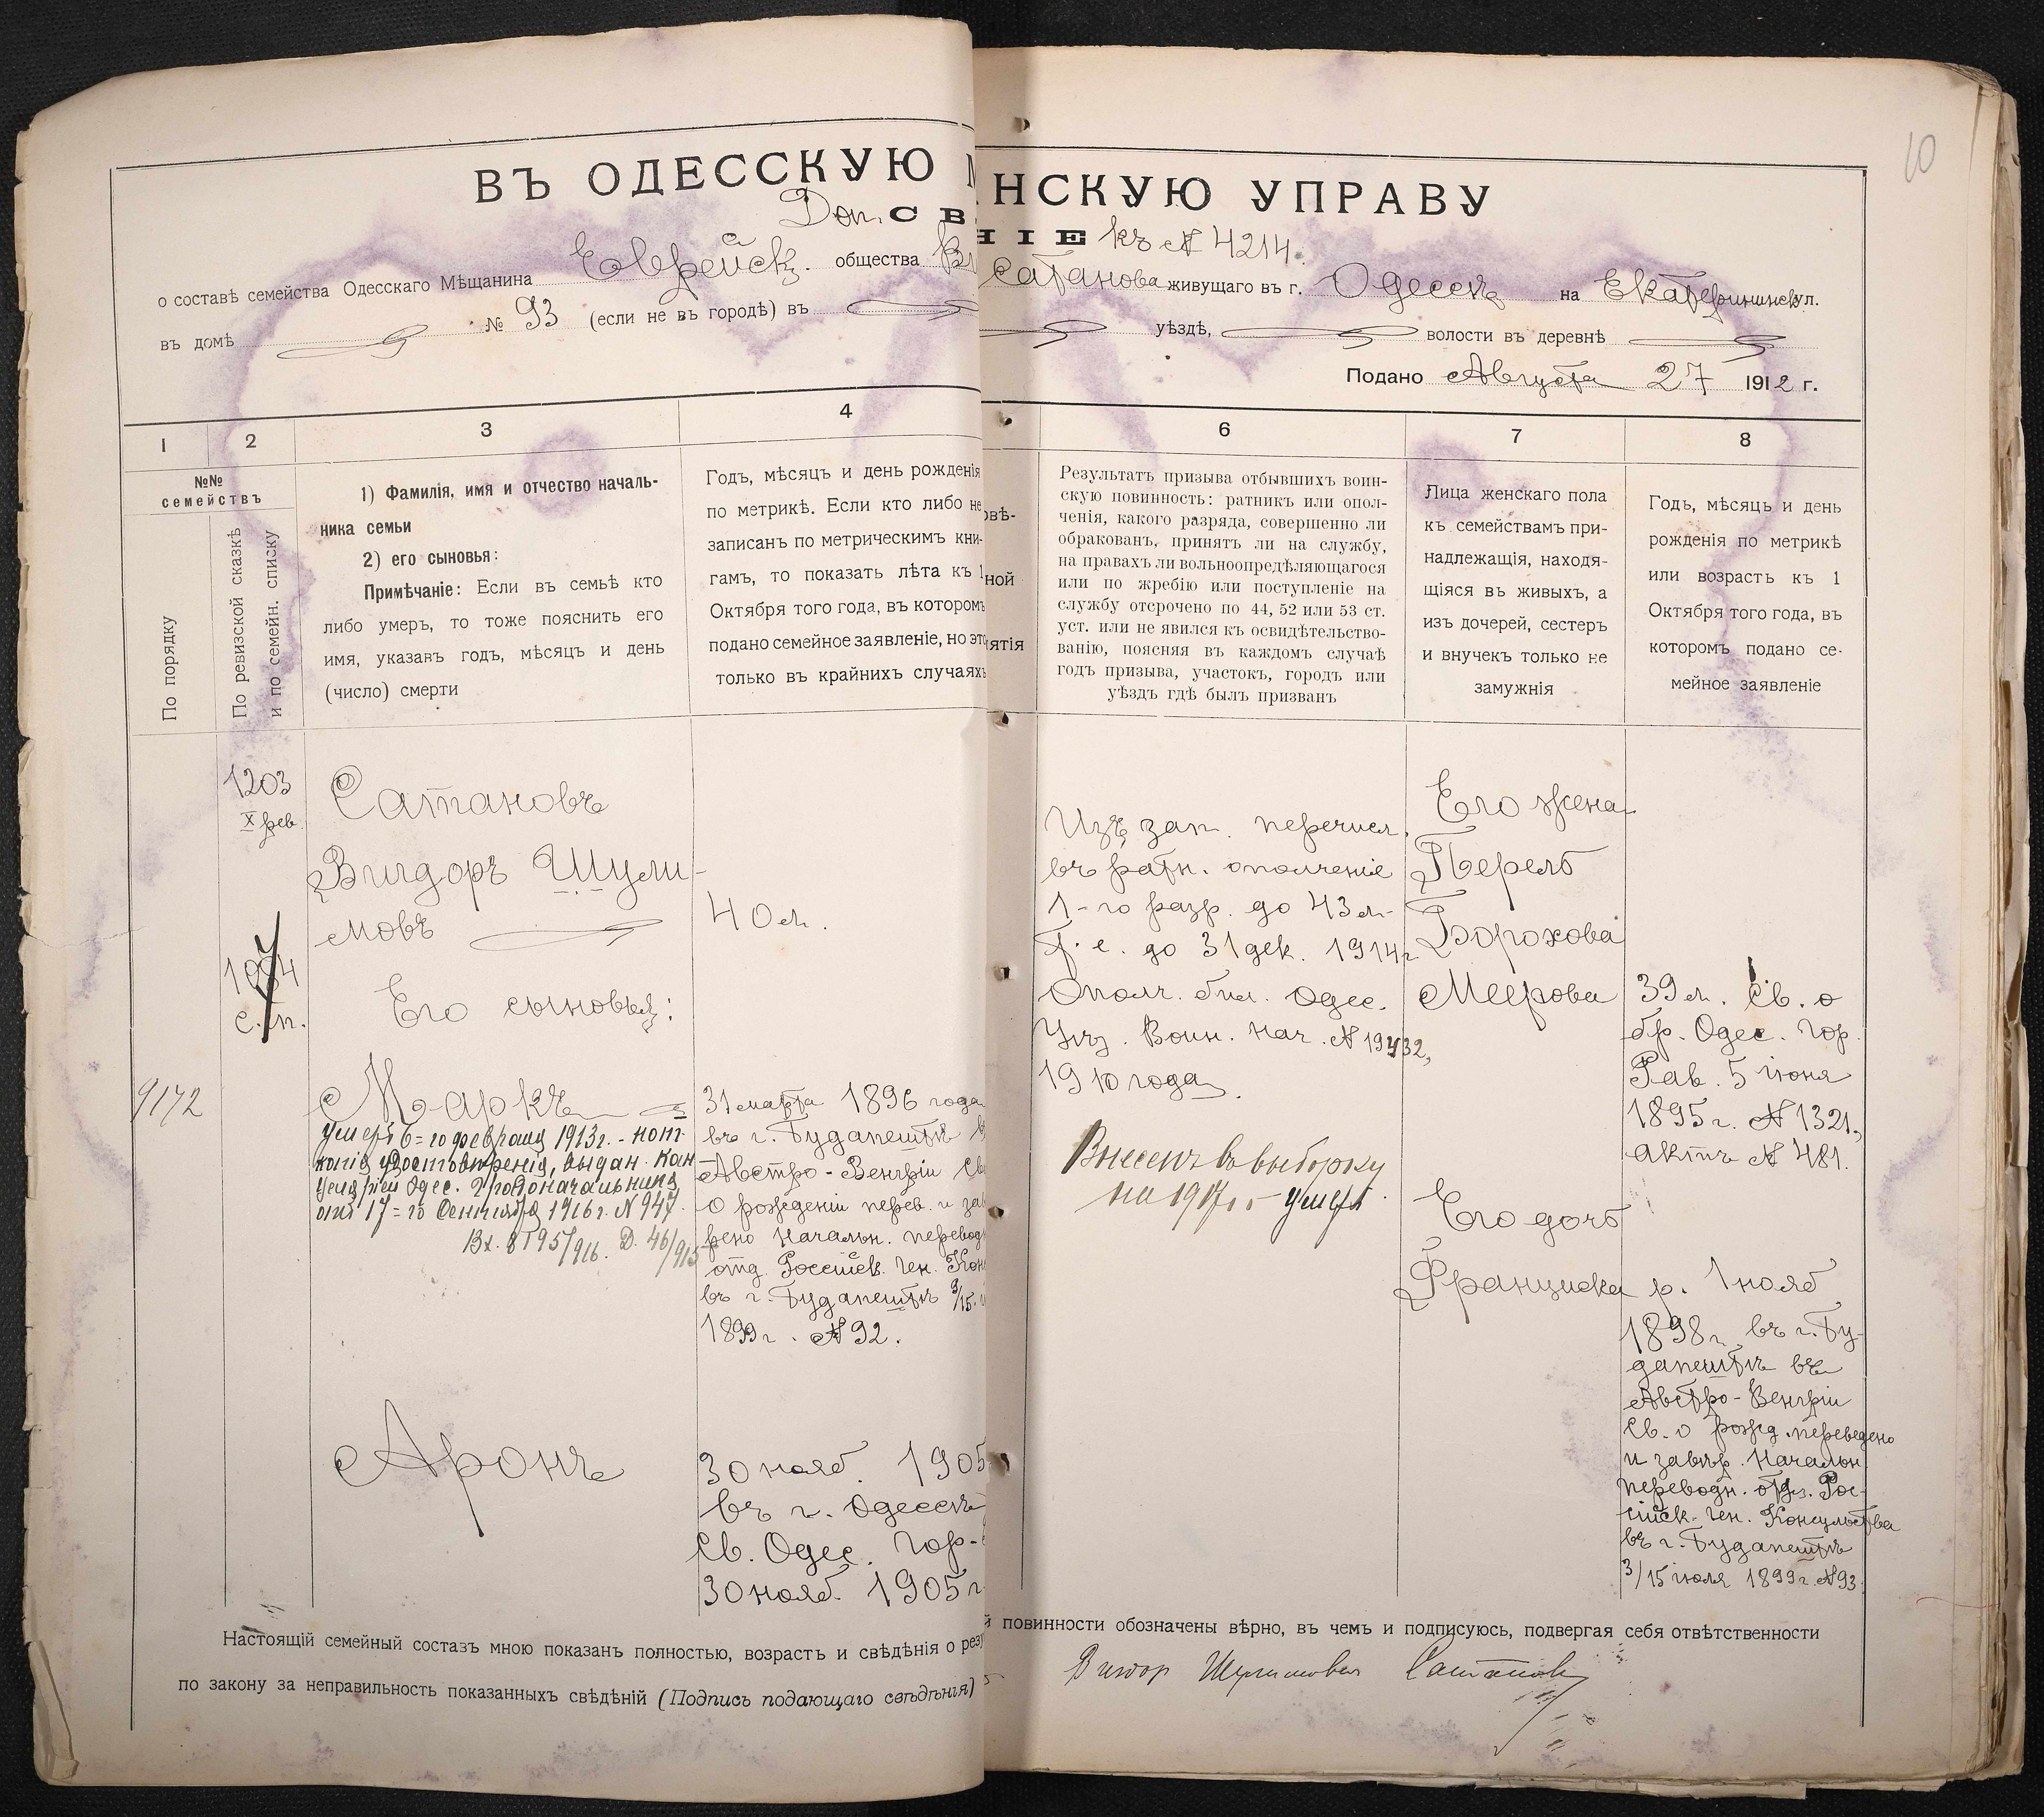 10
ВЪ ОДЕССКУЮ
НСКУЮ УПРАВУ
Доп. СВ
НІЕ къ № 4214.
о составѣ семейства Одесскаго Мѣщанина Еврейск. общества
Сатанова живущаго въ г. Одессѣ на Екатерининск ул.
въ домѣ № 93 (если не въ городѣ) въ
уѣздѣ, волости въ деревнѣ
Подано Августа 27 1912 г.
1 2 3 4
6 7 8
№№
семействъ
По порядку
По ревизской сказкѣ
и по семейн. списку
1) Фамилія, имя и отчество началь-
ника семьи
2) его сыновья:
Примѣчаніе: Если въ семьѣ кто
либо умеръ, то тоже пояснить его
имя, указавъ годъ, мѣсяцъ и день
(число) смерти
Годъ, мѣсяцъ и день рожденія
по метрикѣ. Если кто либо не
записанъ по метрическимъ кни-
гамъ, то показать лѣта къ 1
Октября того года, въ которомъ
подано семейное заявленіе, но это
только въ крайнихъ случаяхъ
овѣ-
ной
нятія
Результатъ призыва отбывшихъ воин-
скую повинность: ратникъ или опол-
ченія, какого разряда, совершенно ли
обракованъ, принятъ ли на службу,
на правахъ ли вольноопредѣляющагося
или по жребію или поступленіе на
службу отсрочено по 44, 52 или 53 ст.
уст. или не явился къ освидѣтельство-
ванію, поясняя въ каждомъ случаѣ
годъ призыва, участокъ, городъ или
уѣздъ гдѣ былъ призванъ
Лица женскаго пола
къ семействамъ при-
надлежащія, находя-
щіяся въ живыхъ, а
изъ дочерей, сестеръ
и внучекъ только не
замужнія
Годъ, мѣсяцъ и день
рожденія по метрикѣ
или возрастъ къ 1
Октября того года, въ
которомъ подано се-
мейное заявленіе
1203
X рев.
с. п.
9172
Сатановъ
Вигдоръ Шули-
мовъ
Его сыновья:
Маркъ
умеръ 6=го февраля 1913г. - нот.
копія удостовѣренія, выдан. Кан
целяріей Одес. Градоначальника
отъ 17=го Сентября 1916 г. N 947.
Вх. 8195/916. Д. 46/915
Аронъ
40 л.
31 марта 1896 года
въ г. Будапештѣ
Австро-Венгріи Св
о рожденіи перев. и зав
рено Начальн. перевод
отд. Россійск. Ген. Кон
въ г. Будапештѣ 3/15.
1899 г. № 92.
30 нояб. 1905
въ г. Одессѣ
Св. Одес. Гор-
30 нояб. 1905 г
Изъ зап. перечисл.
въ ратн. ополченіе
1-го разр. до 43 л-
т. е. до 31 дек. 1914 г
Ополч. бил. Одес.
Уѣз. Воин. Нач. № 19432,
1910 года
Внесенъ въ выборку
на 1917 г. - умеръ.
Его жена
Перель
Борохова
Меерова
Его дочь
Франциска
39 л. Св. о
бр. Одес. Гор.
Рав. 5 іюня
1895 г. № 1321,
актъ № 481.
р. 1 нояб
1898 г. въ г. Бу-
дапештѣ въ
Австро-Венгріи
Св. о рожд. переведено
и завѣр. Начальн.
переводн. отд. Рос-
сійск. Ген. Консульства
въ г. Будапештѣ
3/15 іюля 1899 г. № 93.
Настоящій семейный составъ мною показанъ полностью, возрастъ и свѣдѣнія о рез
й повинности обозначены вѣрно, въ чемъ и подписуюсь, подвергая себя отвѣтственности
по закону за неправильность показанныхъ свѣдѣній (Подпись подающаго свѣдѣнія)
Вигдор Шулимович Сатанов